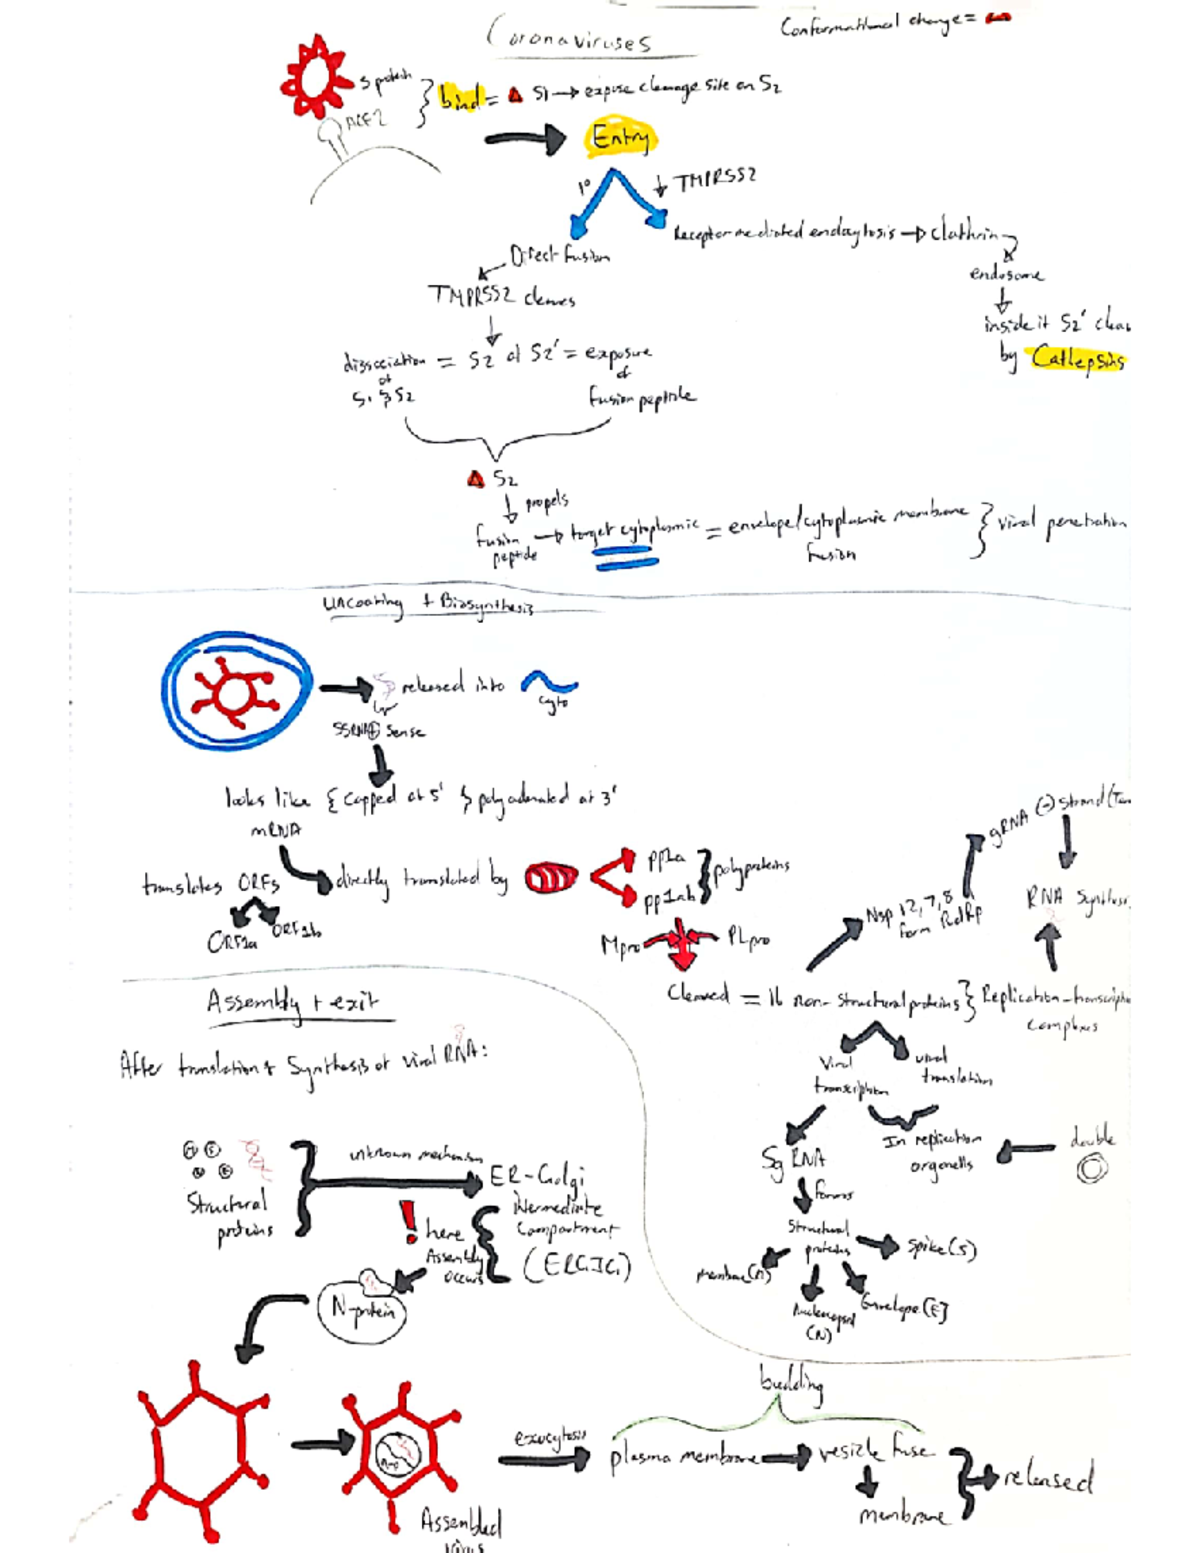 Coronaviruses
Conformational change =
S protein
ACE2
bind = Δ S1 → expose cleavage site on S2
Entry
1°
↓ TMPRSS2
Direct fusion
Receptor mediated endocytosis → clathrin
endosome
TMPRSS2 cleaves
inside it S2' clea
by Cathepsins
dissociation = S2 at S2' = exposure
of
of
S1 & S2
fusion peptide
Δ S2
↓ propels
fusion peptide → target cytoplasmic = envelope/cytoplasmic membrane fusion } viral penetration
Uncoating + Biosynthesis
released into
cyto
SSRNA⊕ Sense
looks like { capped at 5' & polyadenated at 3'
mRNA
translates ORFs
directly translated by
ORF1a
ORF1b
pp1a
pp1ab
} polyproteins
Mpro
PLpro
Cleaved = 16 non-structural proteins } Replication-transcrip
complexes
Nsp 12, 7, 8
form RdRp
gRNA (-) strand (Tem
RNA Synthesi
Viral transcription
viral translation
In replication organells
double
Sg RNA
forms
Structural proteins
Spike (S)
membrane (M)
Nucleocapsid (N)
Envelope (E)
Assembly + exit
After translation & Synthesis of viral RNA:
M
E
N
E
Structural proteins
unknown mechanism
ER-Golgi
intermediate
compartment
(ERGIC)
! here
Assembly
occurs
N-protein
Assembled
virus
exocytosis
budding
plasma membrane
vesicle fuse
membrane
released